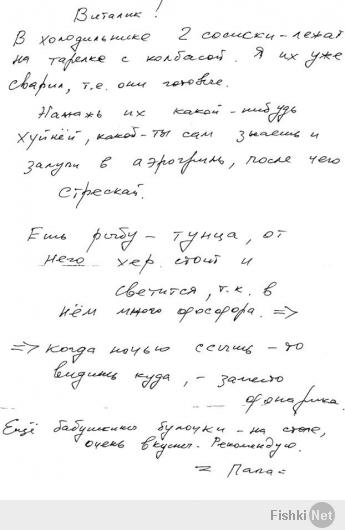 Виталик!
В холодильнике 2 сосиски - лежат
на тарелке с колбасой. Я их уже
сварил, т.е. они готовые.
Намажь их какой-нибудь
хуйнёй, какой-ты сам знаешь и
залупи в аэрогриль, после чего
стрескай.
Ешь рыбу - тунца, от
него хер стоит и
светится, т.к. в
нём много фосфора. =>
=> Когда ночью ссышь - то
видишь куда, - заместо
фонарика.
Ещё бабушкины булочки - на столе,
очень вкусные. Рекомендую.
= Папа =
Fishki.Net